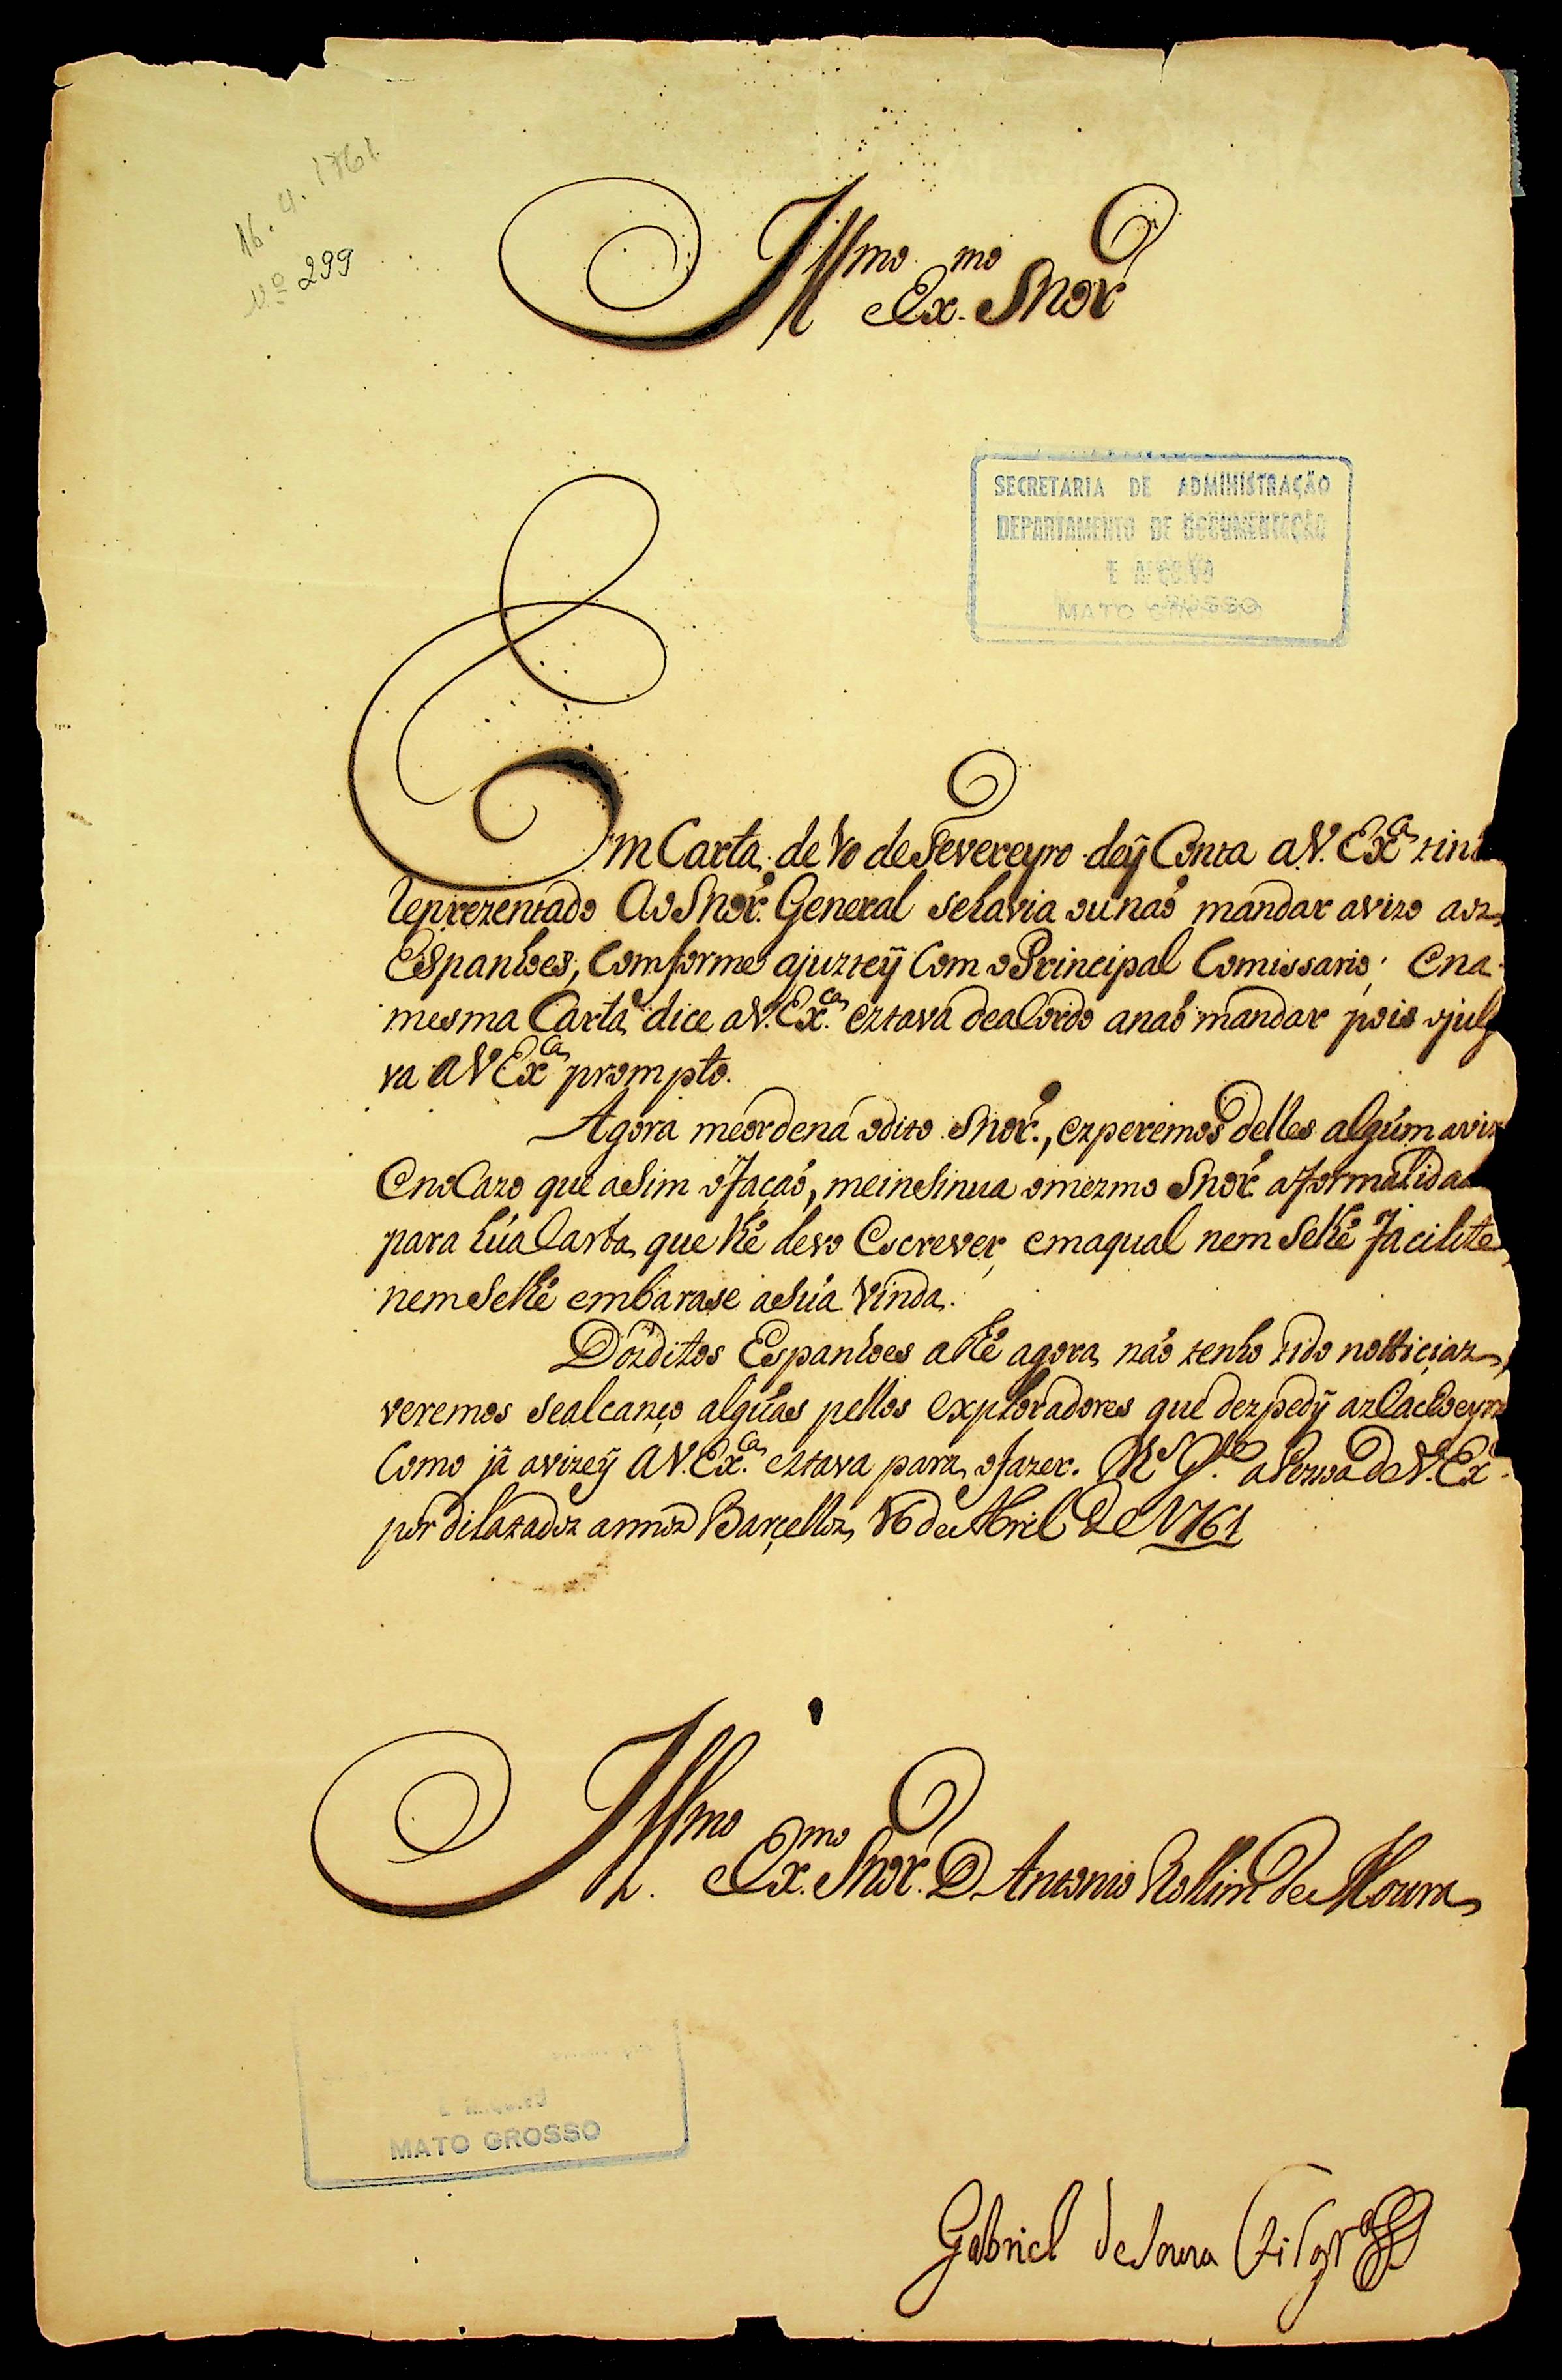 16. 4. 1761
Nº 299
Illmo. Ex.mo Snor
SECRETARIA DE ADMINISTRAÇÃO
DEPARTAMENTO DE DOCUMENTAÇÃO
E ARQUIVO
MATO GROSSO
Em Carta de 10 de Fevereyro deÿ Conta a V. Exca tinha
reprezentado Ao Snor. General se havia ou naó mandar avizo aoz
Espanhoes, Comforme ajuzteÿ Com o Principal Comissario; e na
mesma Carta dice a V. Exca. eztava de acordo a naó mandar pois o julga
va a V Exca prompto.
Agora me ordena o dito Snor., ezperemos delles algúm avizo
e no Cazo que asim o façaó, me insinua o mezmo Snor a formalidade
para húa Carta que lhé devo Escrever, em a qual nem se lhé facilite
nem se lhé embarase a súa vinda.
Doz ditos Espanhoes athé agora náo tenho tido notticiaz,
veremos se alcanço algúas pellos exploradores que dezpedÿ az Cachoeyraz
Como já avizeÿ a V. Exca. eztava para o fazer. Ns Gde a Pezoa de V. Exca.
por dilatadoz annoz Barçelloz 16 de Abril de 1761
Illmo. Exmo. Snor. D. Antonio Rollim de Moura
E ARQUIVO
MATO GROSSO
Gabriel de Souza Filgrª